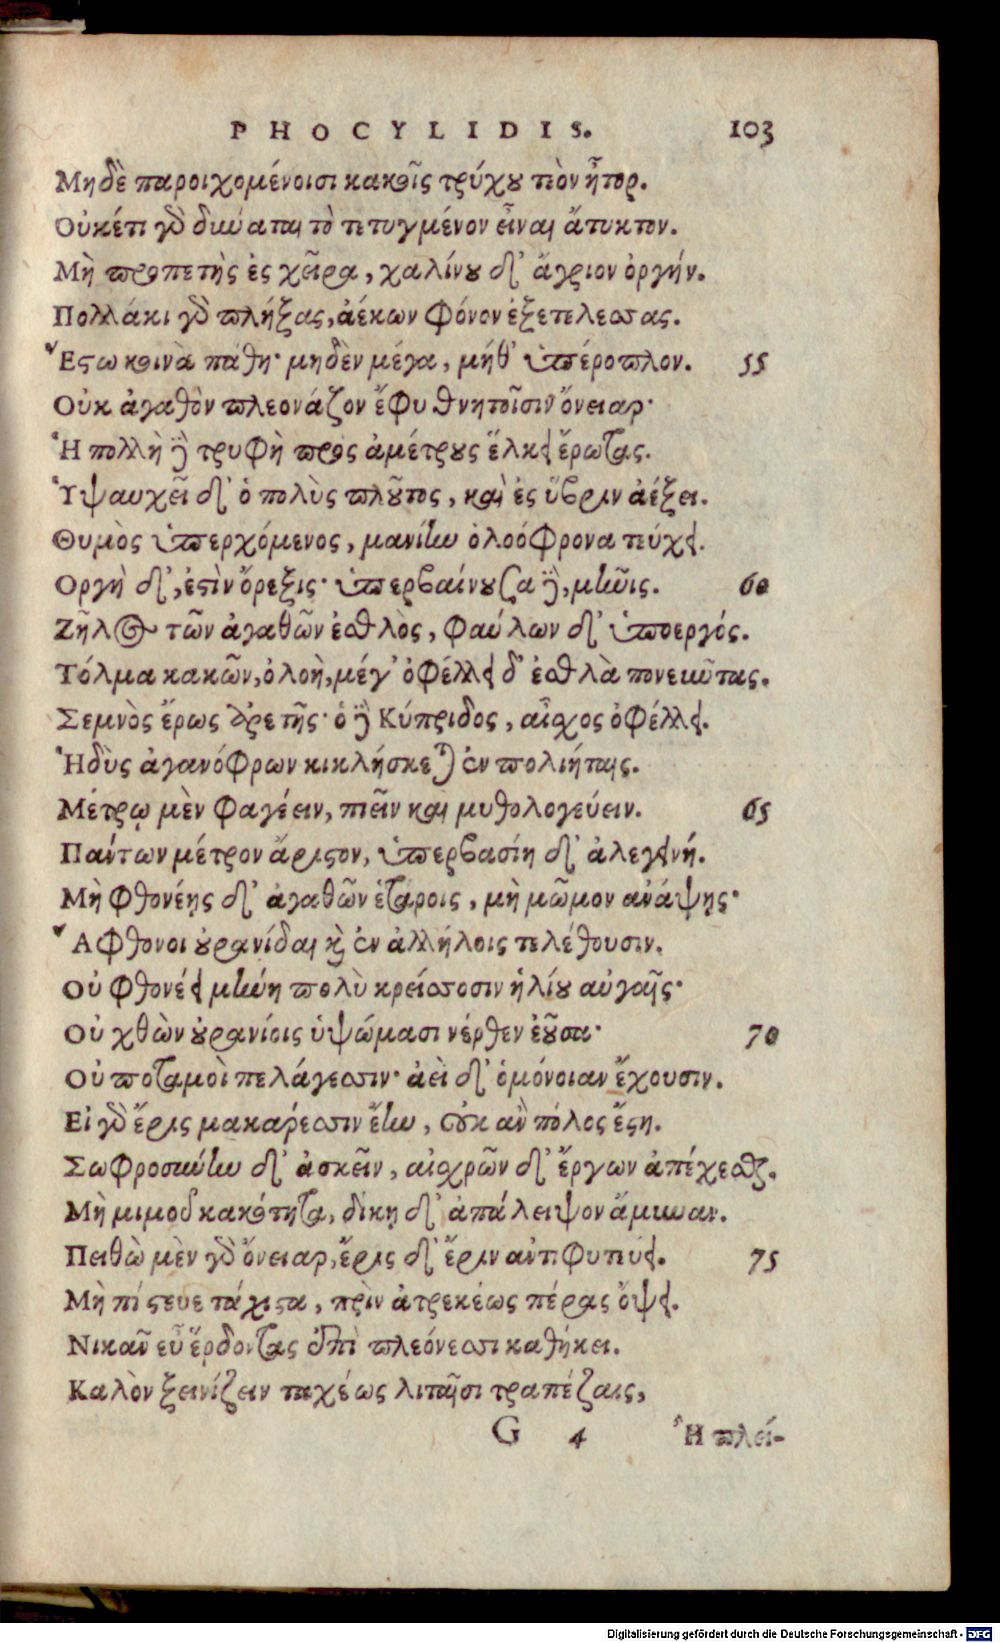 PHOCYLIDIS. 103
Μηδὲ παροιχομένοισι κακοῖς τρύχου τεὸν ἦτορ.
Οὐκέτι γὰρ δύναται τὸ τετυγμένον εἶναι ἄτυκτον.
Μὴ προπετὴς ἐς χεῖρα, χαλίνου δ' ἄγριον ὀργήν.
Πολλάκι γὰρ πλήξας, ἀέκων φόνον ἐξετέλεσσας.
Ἔστω κοινὰ πάθη· μηδὲν μέγα, μήθ' ὑπέροπλον. 55
Οὐκ ἀγαθὸν πλεονάζον ἔφυ θνητοῖσιν ὄνειαρ·
Ἡ πολλὴ δὲ τρυφὴ πρὸς ἀμέτρους ἕλκει ἔρωτας.
Ὑψαυχεῖ δ' ὁ πολὺς πλοῦτος, καὶ ἐς ὕβριν ἀέξει.
Θυμὸς ὑπερχόμενος, μανίην ὀλοόφρονα τεύχει.
Οργὴ δ', ἐστὶν ὄρεξις· ὑπερβαίνουσα δὲ, μῆνις. 60
Ζῆλος τῶν ἀγαθῶν ἐσθλὸς, φαύλων δ' ὑποεργός.
Τόλμα κακῶν, ὀλοὴ, μέγ' ὀφέλλει δ' ἐσθλὰ πονεῦντας.
Σεμνὸς ἔρως ἀρετῆς· ὁ δὲ Κύπριδος, αἶσχος ὀφέλλει.
Ἡδὺς ἀγανόφρων κικλήσκεται ἐν πολιήταις.
Μέτρῳ μὲν φαγέειν, πιεῖν καὶ μυθολογεύειν. 65
Πάντων μέτρον ἄριστον, ὑπερβασίη δ' ἀλεγεινή.
Μὴ φθονέῃς δ' ἀγαθῶν ἑτάροις, μὴ μῶμον ἀνάψῃς·
Ἄφθονοι οὐρανίδαι καὶ ἐν ἀλλήλοις τελέθουσιν.
Οὐ φθονέει μήνη πολὺ κρείσσοσιν ἡλίου αὐγαῖς·
Οὐ χθὼν οὐρανίοις ὑψώμασι νέρθεν ἐοῦσα· 70
Οὐ ποταμοὶ πελάγεσσιν· ἀεὶ δ' ὁμόνοιαν ἔχουσιν.
Εἰ γὰρ ἔρις μακάρεσσιν ἔην, οὐκ ἂν πόλος ἔστη.
Σωφροσύνην δ' ἀσκεῖν, αἰσχρῶν δ' ἔργων ἀπέχεσθαι.
Μὴ μιμοῦ κακότητα, δίκῃ δ' ἀπόλειψον ἄμυναν.
Πειθὼ μὲν γὰρ ὄνειαρ, ἔρις δ' ἔριν ἀντιφυτεύει. 75
Μὴ πίστευε τάχιστα, πρὶν ἀτρεκέως πέρας ὄψει.
Νικᾶν εὖ ἕρδοντας ἐπὶ πλεόνεσσι καθήκει.
Καλὸν ξεινίζειν ταχέως λιταῖσι τραπέζαις,
G 4 Ἢ πλεί-
Digitalisierung gefördert durch die Deutsche Forschungsgemeinschaft - DFG